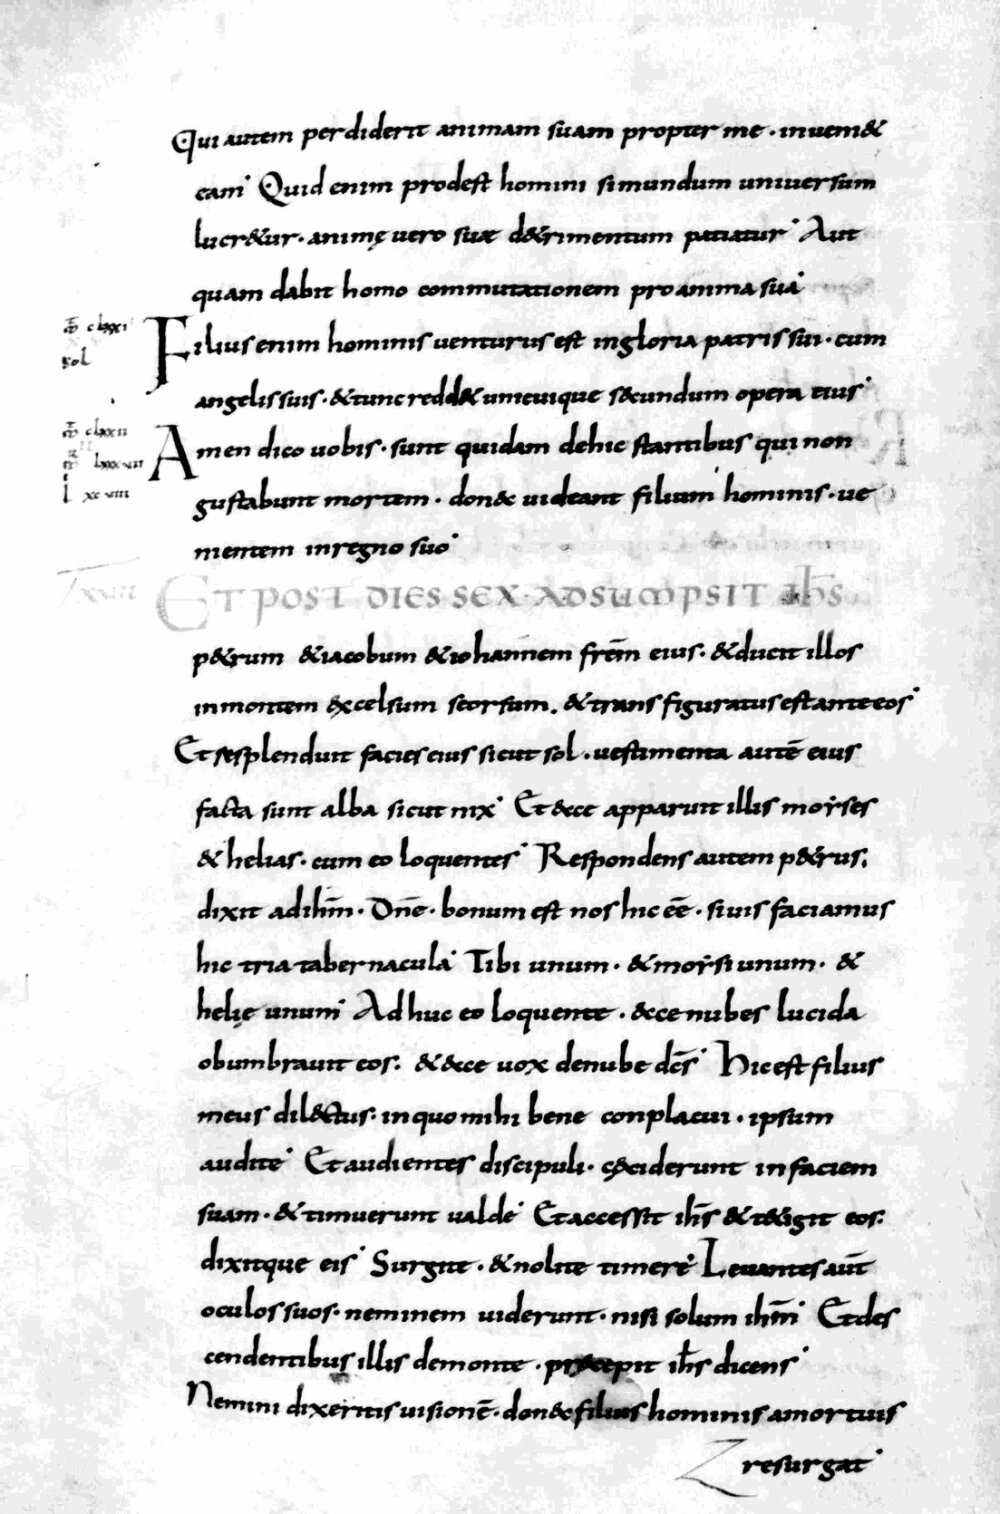 Qui autem perdiderit animam suam propter me · inueni&
eam· Quid enim prodest homini si mundum uniuersum
lucr&ur · animę uero suae d&rimentum patiatur· Aut
quam dabit homo commutationem pro anima sua·
clxxi Filius enim hominis uenturus est in gloria patris sui · cum
sol
angelis suis · & tunc redd& unicuique secundum opera eius·
clxxii Amen dico uobis · sunt quidam de hic stantibus qui non
lxxxvii
l xcviii gustabunt mortem · donec uideant filium hominis · ue
nientem in regno suo·
ET POST DIES SEX · ADSUMPSIT ih̅s
p&rum & iacobum & iohannem fre̅m eius · & ducit illos
in montem excelsum seorsum. & transfiguratus est ante eos·
Et resplenduit facies eius sicut sol · uestimenta aute̅ eius
facta sunt alba sicut nix· Et ecce apparuit illis moẏses
& helias · cum eo loquentes· Respondens autem p&rus;
dixit ad ihm̅ · Dn̅e · bonum est nos hic ee̅ · si uis faciamus
hic tria tabernacula· Tibi unum · & moẏsi unum · &
helię unum· Adhuc eo loquente · ecce nubes lucida
obumbrauit eos: & ecce uox de nube dc̅s· Hic est filius
meus dilectus · in quo mihi bene conplacui · ipsum
audite· Et audientes discipuli · ceciderunt in faciem
suam · & timuerunt ualde· Et accessit ih̅s & t&igit eos:
dixitque eis· Surgite · & nolite timere· Leuantes aut̅
oculos suos · neminem uiderunt · nisi solum ihm̅· Et des
cendentibus illis de monte · praecepit ih̅s dicens·
Nemini dixeritis uisione̅ · donec filius hominis a mortuis
resurgat·